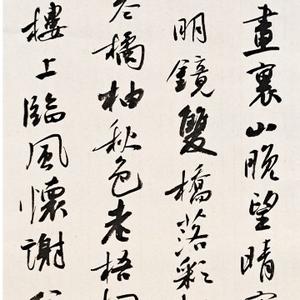 畫裏山晚望晴
明鏡雙橋落彩
橘柚秋色老梧
樓上臨風懷謝